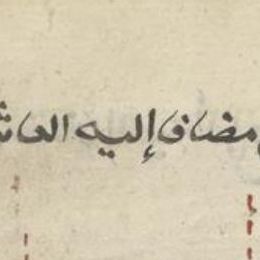 مضاف إليه العاش